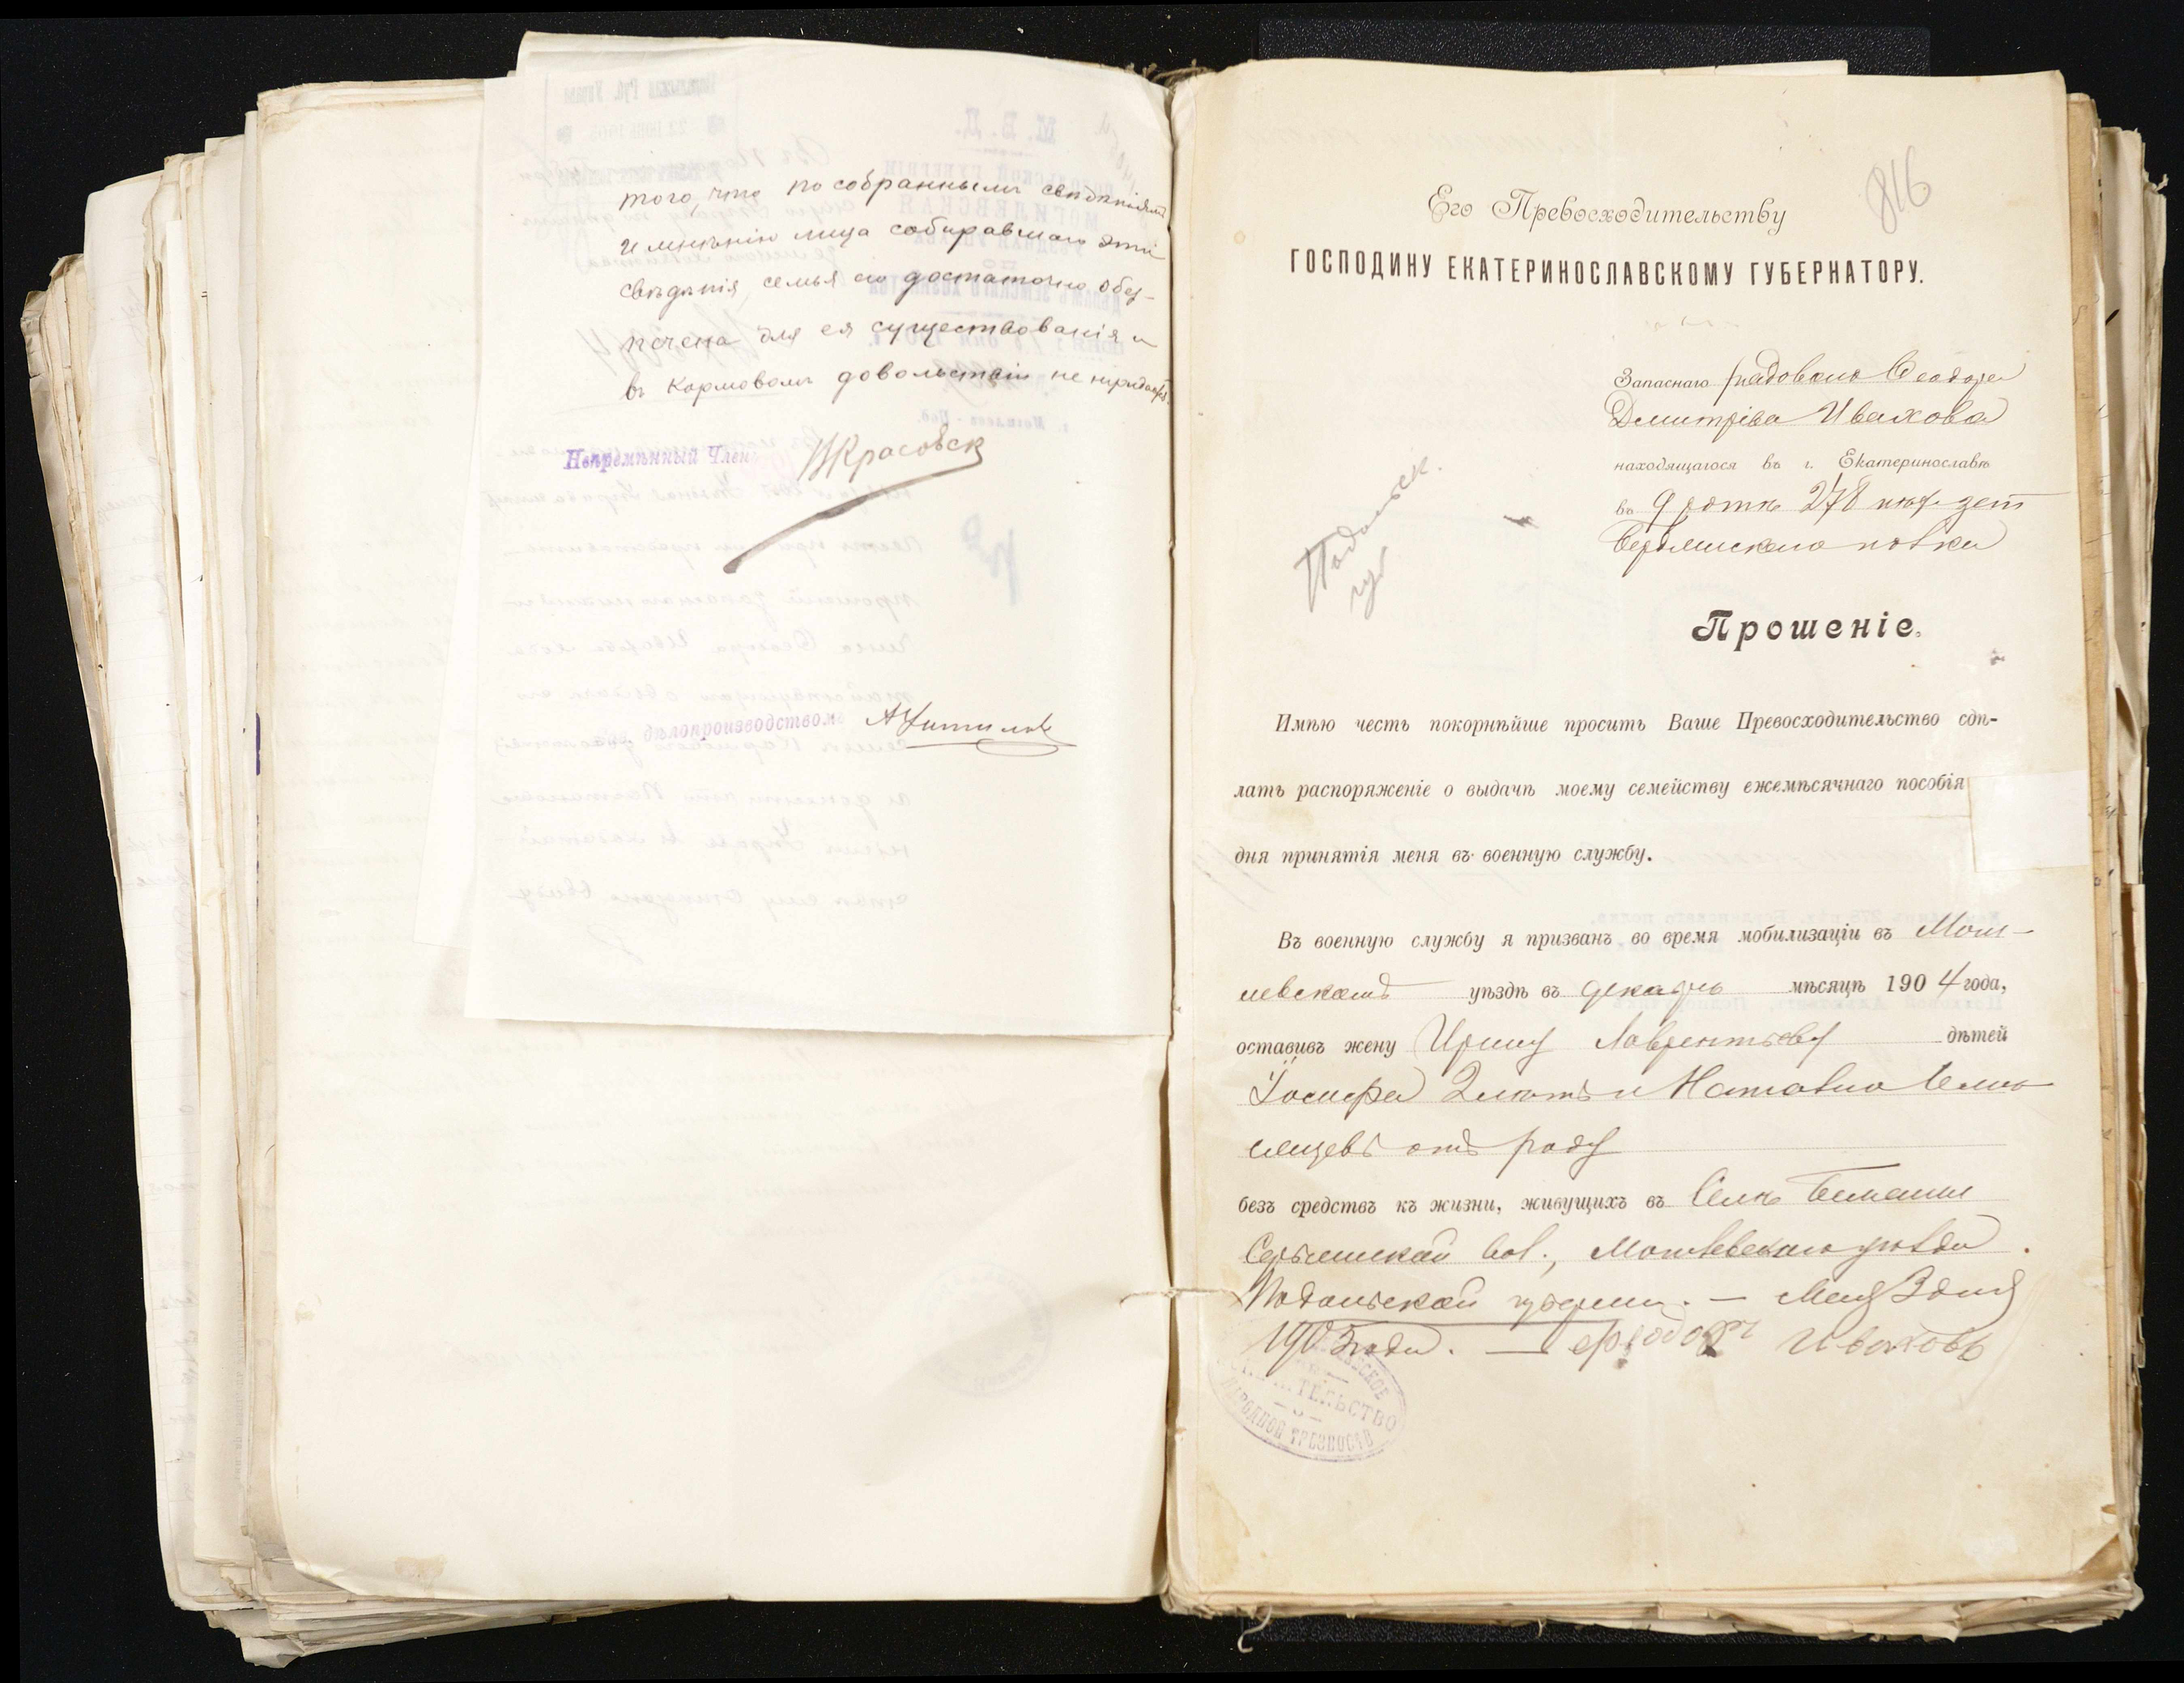 того, что по собраннымъ свѣдѣніямъ
и мнѣнію лица собиравшаго эти
свѣдѣнія, семья его достаточно обез-
печена для ея существованія и
въ кормовомъ довольствіи не нуждается.
Непремѣнный Членъ ВКрасовск
дѣлопроизводствомъ
816
Его Превосходительству
ГОСПОДИНУ ЕКАТЕРИНОСЛАВСКОМУ ГУБЕРНАТОРУ.
Запаснаго рядового Ѳеодора
Дмитріева Ивахова
находящагося въ г. Екатеринославѣ
въ 9 ротѣ 278 пѣх.
Бердянскаго полка
Подольск.
губ
Прошеніе.
Имѣю честь покорнѣйше просить Ваше Превосходительство сдѣ-
лать распоряженіе о выдачѣ моему семейству ежемѣсячнаго пособія
дня принятія меня въ военную службу.
Въ военную службу я призванъ во время мобилизаціи въ Моги-
левскомъ уѣздѣ въ декабрѣ мѣсяцѣ 1904 года,
оставивъ жену Ирину Лаврентьеву дѣтей
Іосифа 2 лѣтъ и Наталію
мѣсяцевъ отъ роду
безъ средствъ къ жизни, живущихъ въ Селѣ
вол., Могилевскаго уѣзда
Подольской губерніи. — Мая 3 дня
1905 года. — Ѳеодоръ Иваховъ
НАРОДНОЙ ТРЕЗВОСТИ